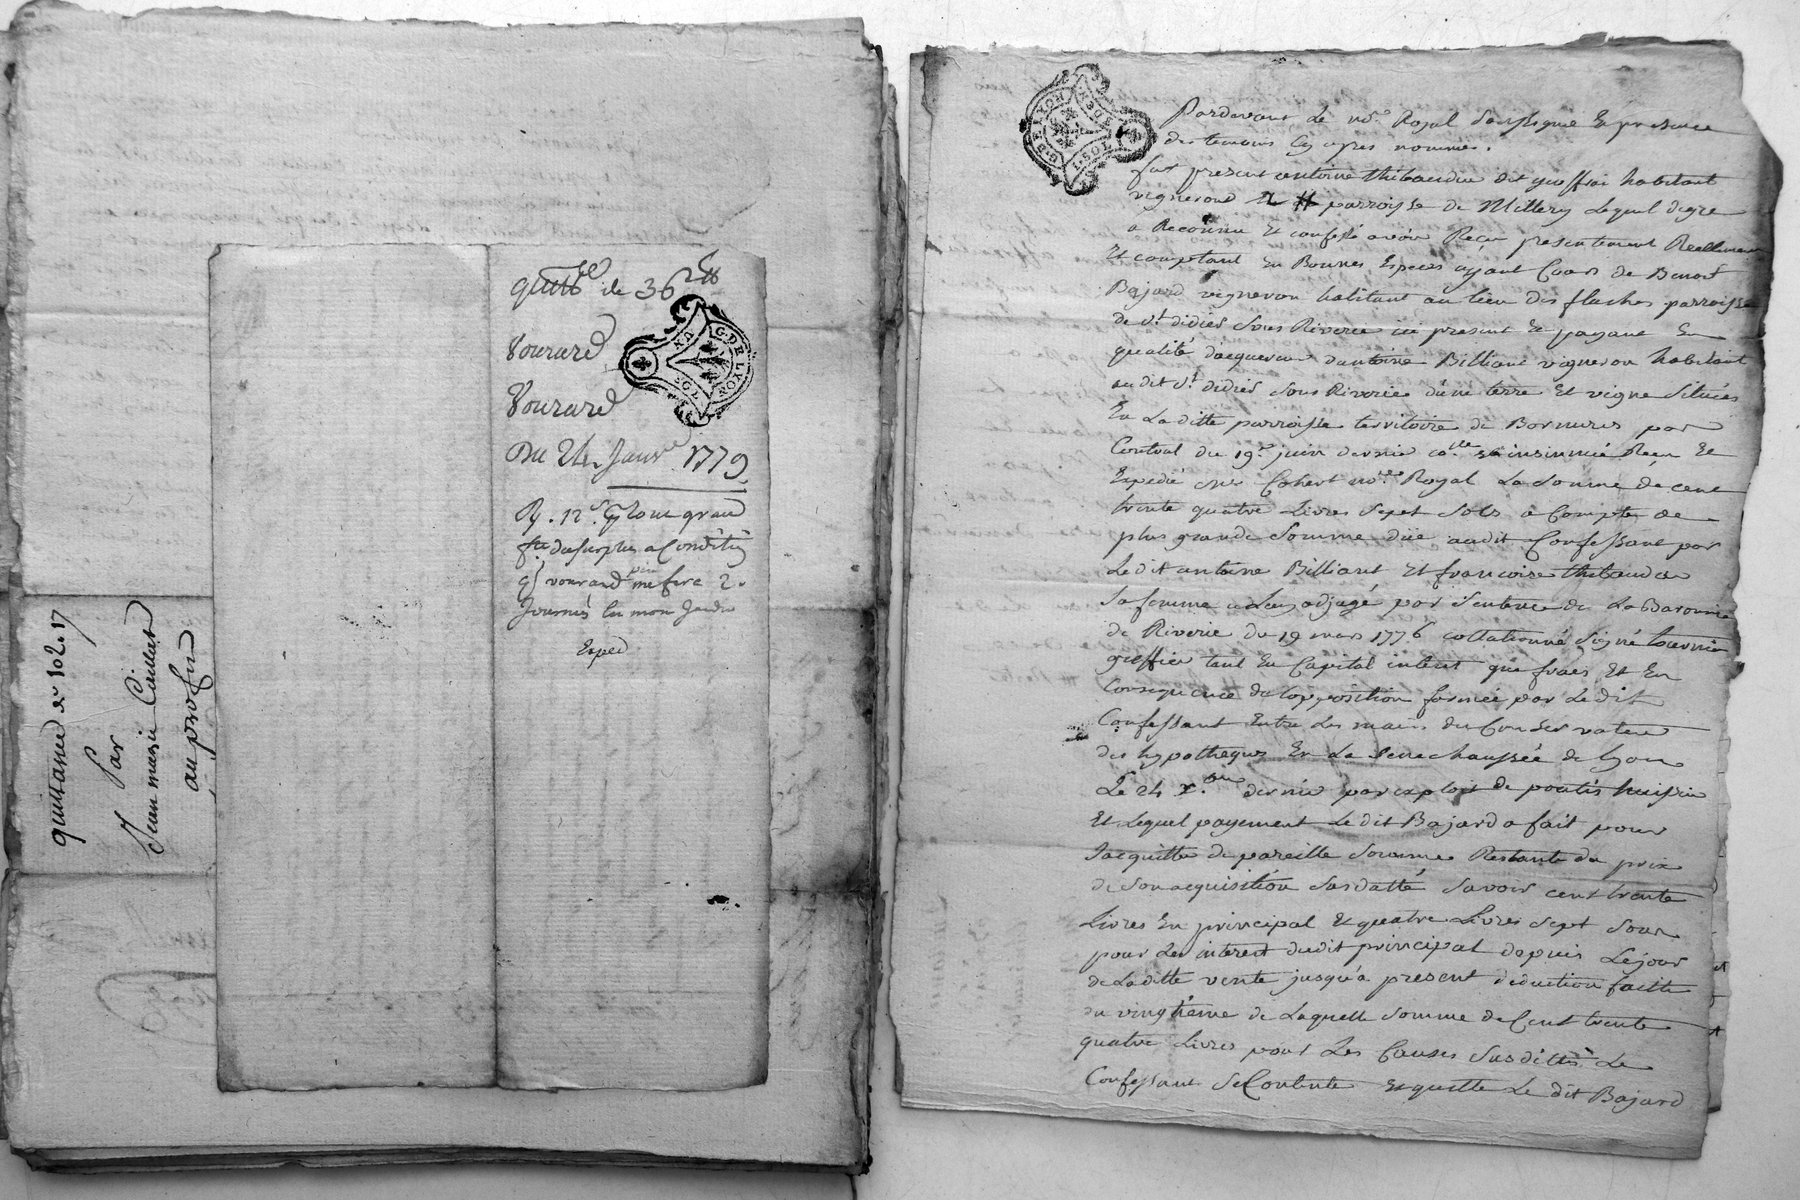 quittance de 102.17
par
Jean marie Caillat
au profit
quitt.ce de 36
G. DE LYON
Du 24 Janv. 1779
R. 12 s. pour grand
du surplus a Condition
me fere 2
Journés en mon Jardin
Exped
G. DE LYON
1. SOL
Pardevant Le no.re Royal Soussigné En presence
des temoins Cy apres nommes.
fut present antoine thibaudier dit habitant
vigneron parroisse de Millery Lequel de gre
a Reconnu Et confessé avoir Reçu presentement Reellement
Et comptant En Bonnes Especes ayant Cours de Benoit
Bajard vigneron habitant au lieu des flaches parroisse
de St. didier Sous Riverie ici present Et payant En
qualité dacquereur dantoine Billiant vigneron habitant
au dit St. didier Sous Riverie dune terre Et vigne Situées
En La ditte parroisse territoire de par
Contrat du 19e juin dernier insinué Reçu Et
Expedié chez no.re Royal La Somme de cent
trente quatre Livres Sept Sols a Compte de
plus grande Somme düe audit Confessant par
Le dit antoine Billiant Et francoise thibaudier
Sa femme adjugé par Sentence de La Baronnie
de Riverie du 19 mars 1776 collationné Signé
greffier tant En Capital interet que frais Et En
Consequence de lopposition formée par Le dit
Confessant Entre Les mains du Conservateur
des hypotheques En La Senechaussée de Lyon
Le 24 dernier par exploit de huissier
Et Lequel payement Le dit Bajard a fait pour
Sacquitter de pareille Somme Restante du prix
de Son acquisition Susdatté Savoir cent trente
Livres En principal Et quatre Livres Sept Sous
pour Les interest dudit principal depuis Le jour
de La ditte vente jusqu'a present déduction faitte
du vingtieme de Laquelle Somme de Cent trente
quatre Livres pour Les Causes Susdittes Le
Confessant Se Contente Et quitte Le dit Bajard